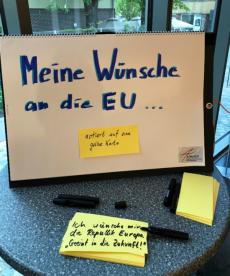 Meine Wünsche
an die EU ...
notiert auf eine
gelbe Karte
Ich wünsche mir
die Republik Europa
„Geeint in die Zukunft!"